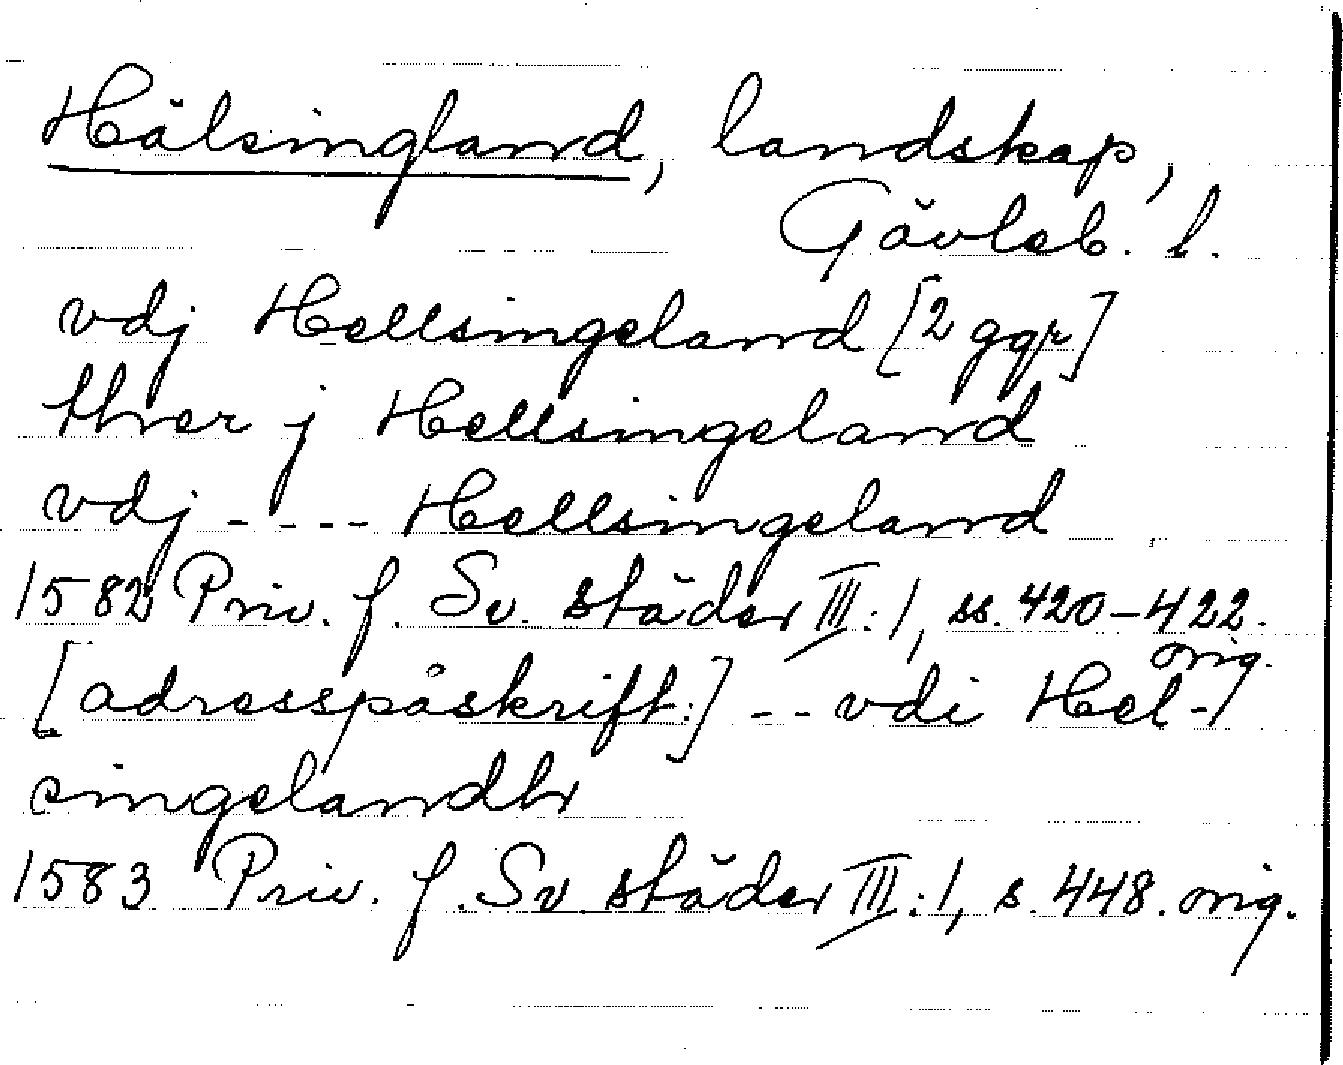 Hälsingland, landskap,
Gävleb. l.
vdj Hellsingeland [2 ggr]
thver j Hellsingeland
vdj - - - - Hellsingeland
1582 Priv. f. Sv. städer III:1, ss. 420-422.
orig.
[adresspåskrift:] - - vdi Hel-
singelandh
1583 Priv. f. Sv. städer III:1, s. 448. orig.